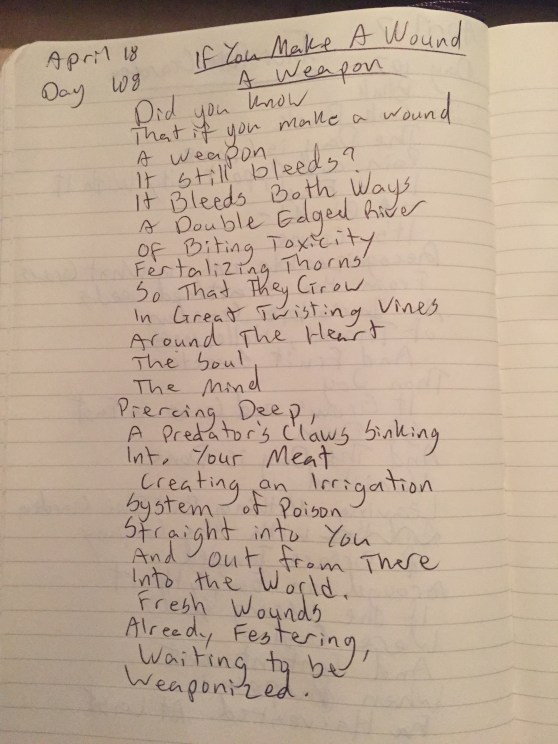 April 18
Day 108
If You Make A Wound
A Weapon
Did you know
That if you make a wound
A weapon
It still bleeds?
It Bleeds Both Ways
A Double Edged River
Of Biting Toxicity
Fertalizing Thorns
So That They Grow
In Great Twisting Vines
Around The Heart
The Soul
The Mind
Piercing Deep,
A Predator's Claws Sinking
Into Your Meat
Creating an Irrigation
System of Poison
Straight into You
And out from There
Into the World.
Fresh Wounds
Already Festering,
Waiting to be
Weaponized.